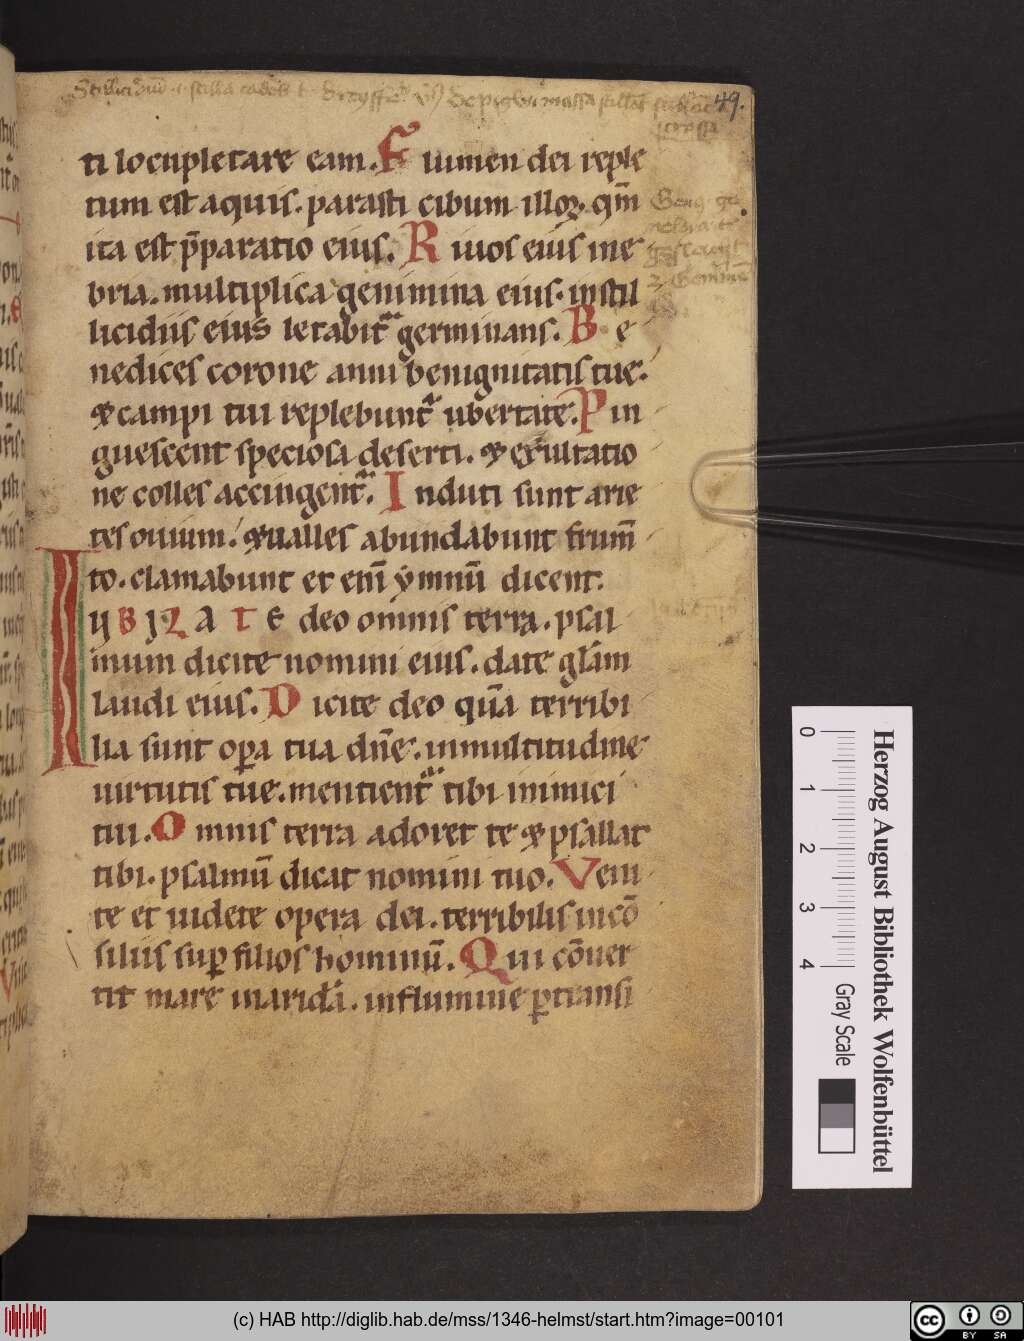 49.
ti locupletare eam. Flumen dei reple
tum est aquis. parasti cibum illoꝝ. qm̄
ita est p̄paratio eius. Riuos eius ine
bria. multiplica genimina eius. in stil
licidiis eius letabit᷑ germinans. Be
nedices corone anni benignitatis tue.
⁊ campi tui replebunt᷑ ubertate. Pin
guescent speciosa deserti. ⁊ exultatio
ne colles accingent᷑. Induti sunt arie
tes ouium. ⁊ ualles abundabunt frum̄
to. clamabunt et eten̄i ẏmnū dicent.
IUBILATE deo omnis terra. psal
mum dicite nomini eius. date glām
laudi eius. Dicite deo quā terribi
lia sunt oꝑa tua dn̄e. in multitudine
uirtutis tue. mentient᷑ tibi inimici
tui. Omnis terra adoret te ⁊ psallat
tibi. psalmū dicat nomini tuo. Veni
te et uidete opera dei. terribilis in cō
siliis suꝑ filios hominū. Qui cōuer
tit mare in aridā. in flumine ꝑtransi
Herzog August Bibliothek Wolfenbüttel
0 1 2 3 4 Gray Scale
(c) HAB http://diglib.hab.de/mss/1346-helmst/start.htm?image=00101
cc BY SA